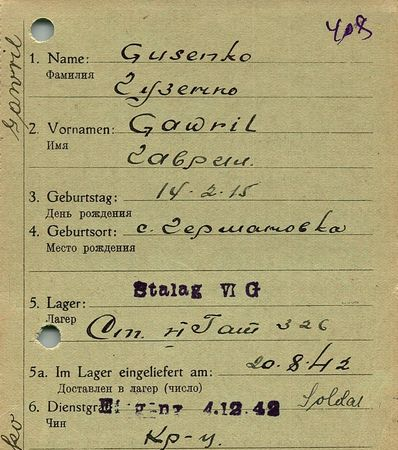 408
Gawril
1. Name: Gusenko
Фамилия
Гузенко
2. Vornamen: Gawril
Имя
Гаврил.
3. Geburtstag: 14-2-15
День рождения
4. Geburtsort: с. Германовка
Место рождения
Stalag VI G
5. Lager:
Лагер
326
5a. Im Lager eingeliefert am: 20.8.42
Доставлен в лагер (число)
6. Dienstgrad Eingang 4.12.42 Soldat
Чин
Кр-ц.
ko